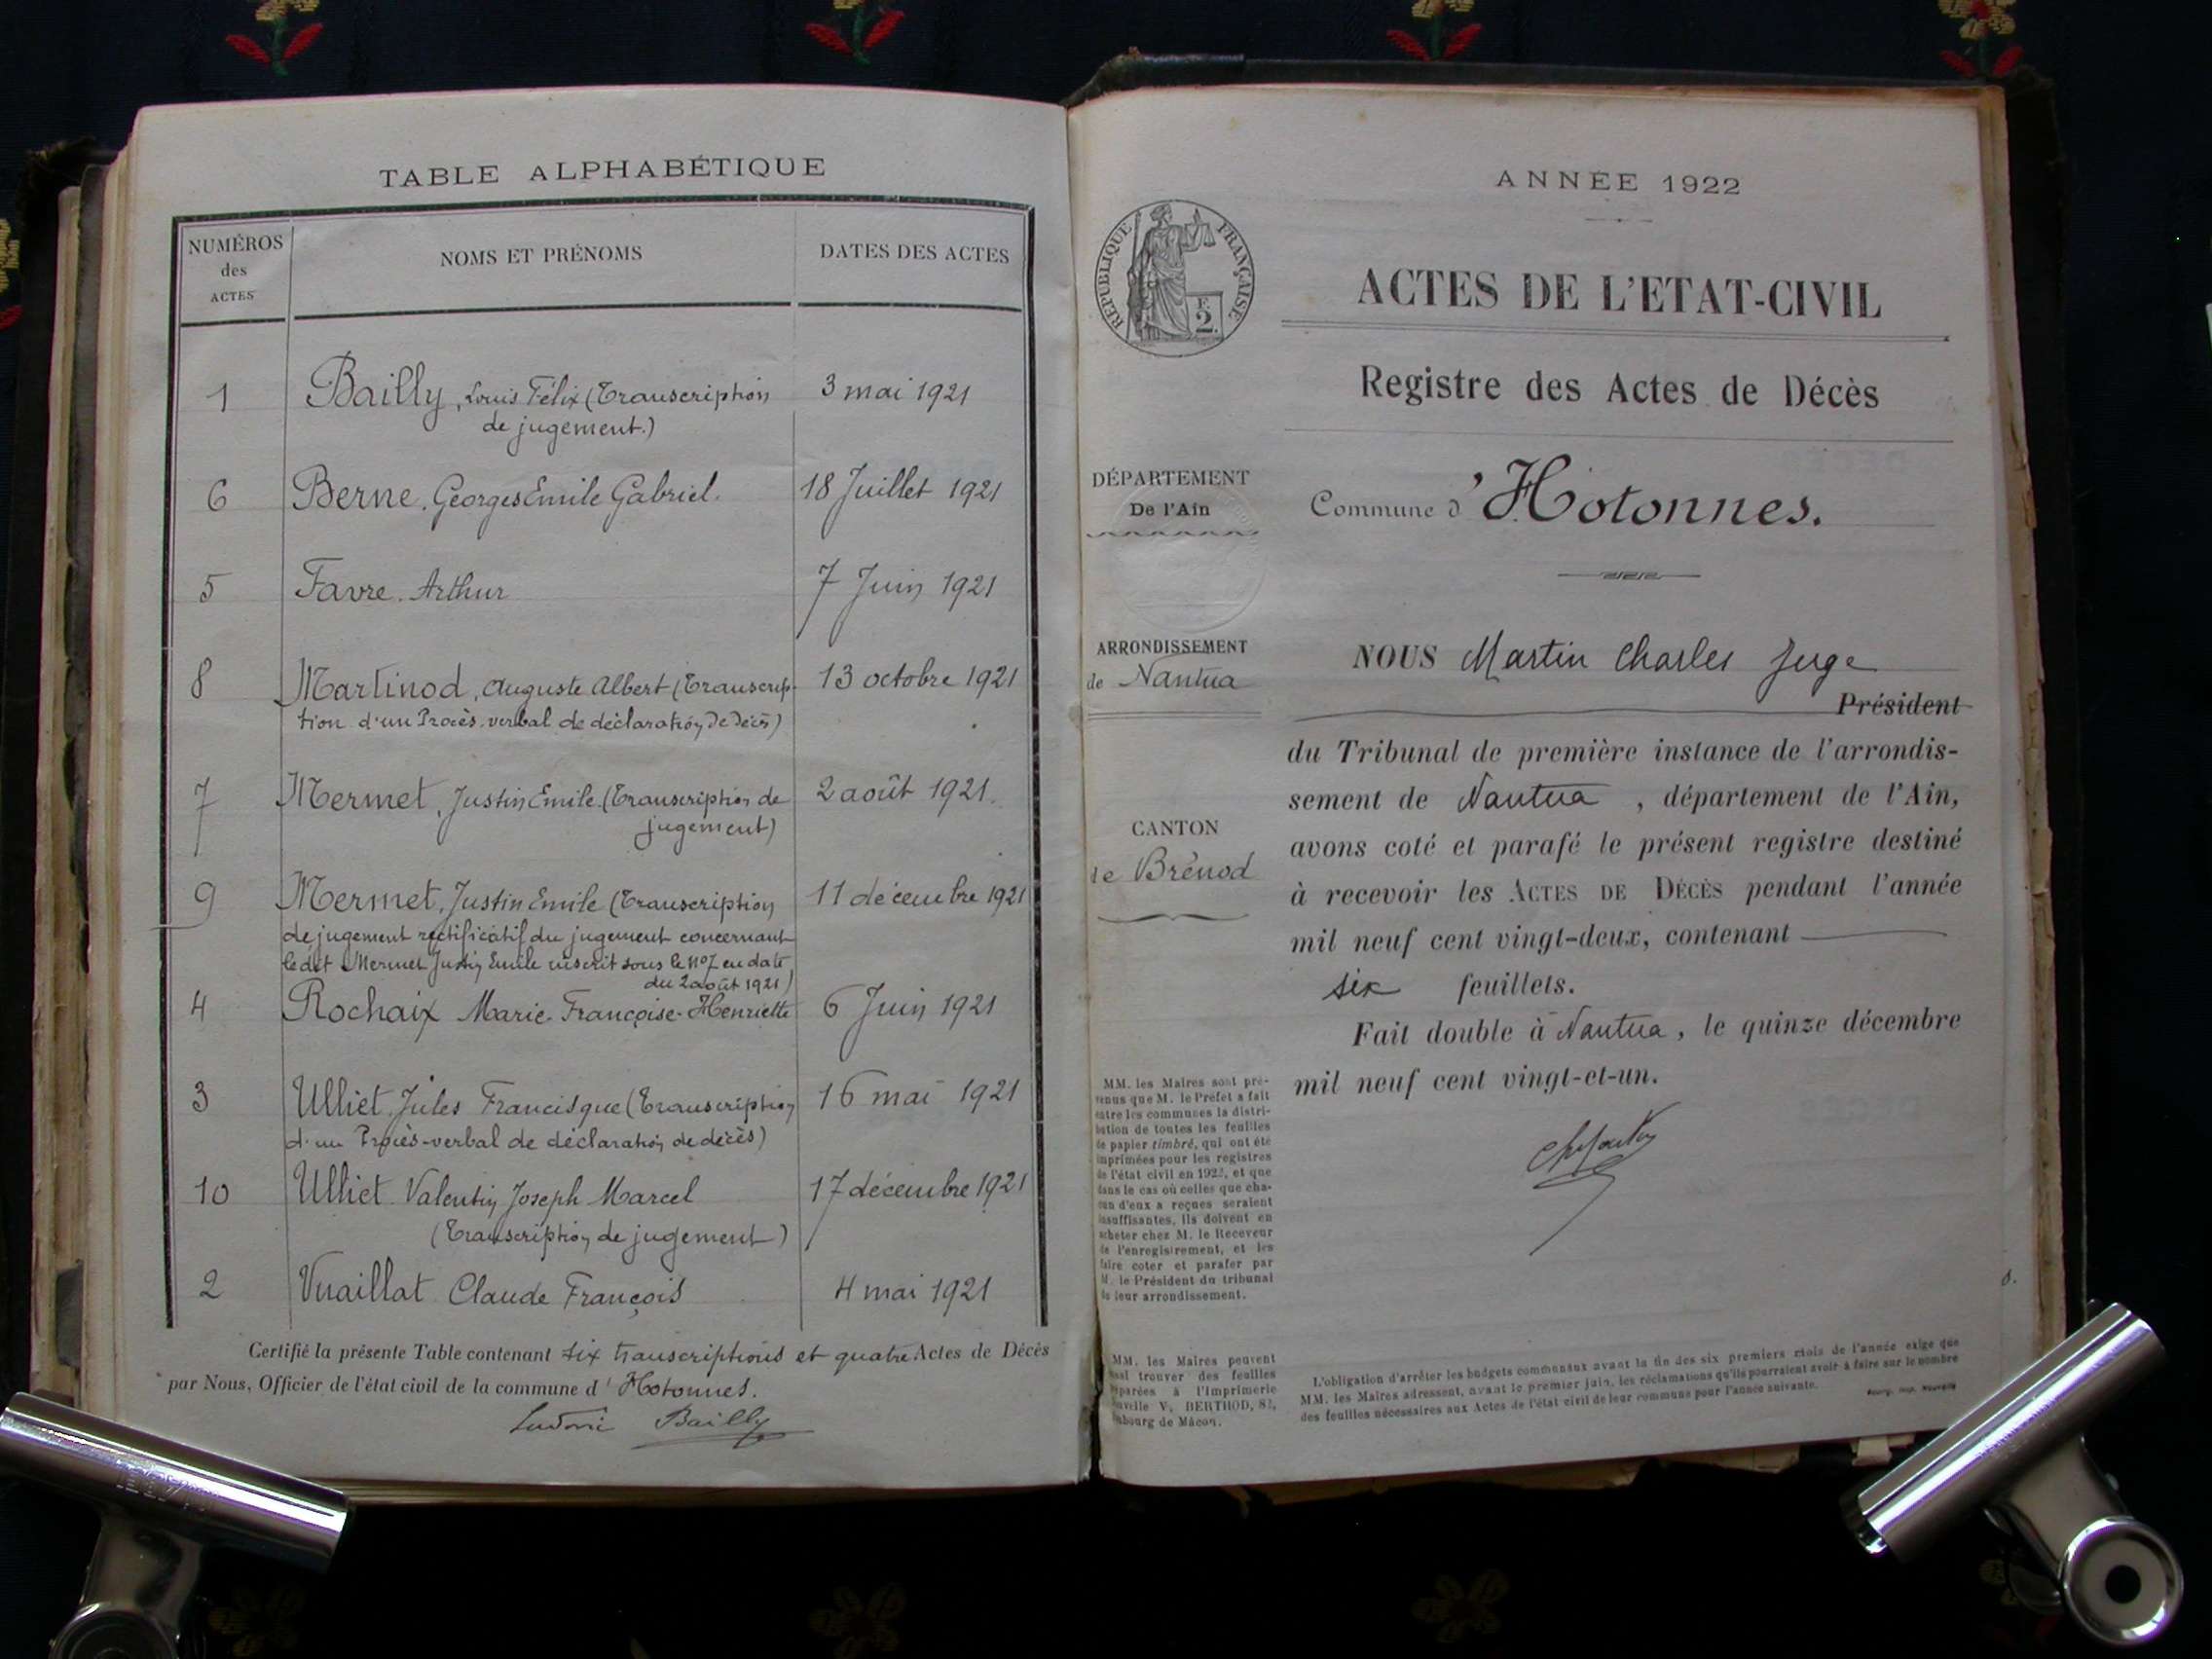 TABLE ALPHABÉTIQUE
NUMÉROS
des
ACTES
NOMS ET PRÉNOMS
DATES DES ACTES
1 Bailly, Louis Félix (Transcription 3 mai 1921
de jugement.)
6 Berne. Georges Emile Gabriel. 18 Juillet 1921
5 Favre. Arthur 7 Juin 1921
8 Martinod, Auguste Albert (Transcrip- 13 octobre 1921
tion d'un Procès-verbal de déclaration de décès)
7 Mermet, Justin Emile (Transcription de 2 août 1921.
jugement)
9 Mermet, Justin Emile (Transcription 11 décembre 1921
de jugement rectificatif du jugement concernant
ledit Mermet Justin Emile inscrit sous le n°7 en date
du 2 août 1921)
4 Rochaix Marie-Françoise-Henriette 6 Juin 1921
3 Ulliet Jules Francisque (Transcription 16 mai 1921
d'un Procès-verbal de déclaration de décès)
10 Ulliet Valentin Joseph Marcel 17 décembre 1921
(Transcription de jugement)
2 Vuaillat Claude François 4 mai 1921
Certifié la présente Table contenant six transcriptions et quatre Actes de Décès
par Nous, Officier de l'état civil de la commune d'Hotonnes.
Ludovic Bailly
ANNÉE 1922
RÉPUBLIQUE FRANÇAISE
F.
2.
ACTES DE L'ETAT-CIVIL
Registre des Actes de Décès
DÉPARTEMENT
De l'Ain
Commune d'Hotonnes.
ARRONDISSEMENT
de Nantua
CANTON
de Brénod
NOUS Martin Charles Juge
Président
du Tribunal de première instance de l'arrondis-
sement de Nantua, département de l'Ain,
avons coté et parafé le présent registre destiné
à recevoir les ACTES DE DÉCÈS pendant l'année
mil neuf cent vingt-deux, contenant
six feuillets.
Fait double à Nantua, le quinze décembre
mil neuf cent vingt-et-un.
MM. les Maires sont pré-
venus que M. le Préfet a fait
entre les communes la distri-
bution de toutes les feuilles
de papier timbré, qui ont été
imprimées pour les registres
de l'état civil en 1922, et que
dans le cas où celles que cha-
cun d'eux a reçues seraient
insuffisantes, ils doivent en
acheter chez M. le Receveur
de l'enregistrement, et les
faire coter et parafer par
M. le Président du tribunal
de leur arrondissement.
MM. les Maires peuvent
trouver des feuilles
préparées à l'Imprimerie
Nouvelle V. BERTHOD, 82,
faubourg de Mâcon.
L'obligation d'arrêter les budgets communaux avant la fin des six premiers mois de l'année exige que
MM. les Maires adressent, avant le premier juin, les réclamations qu'ils pourraient avoir à faire sur le nombre
des feuilles nécessaires aux Actes de l'état civil de leur commune pour l'année suivante.
Bourg, Imp. Nouvelle